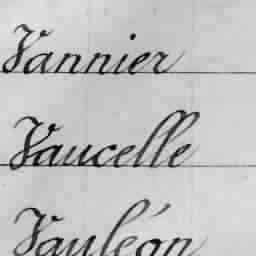 Vannier
Vaucelle
Vauléon